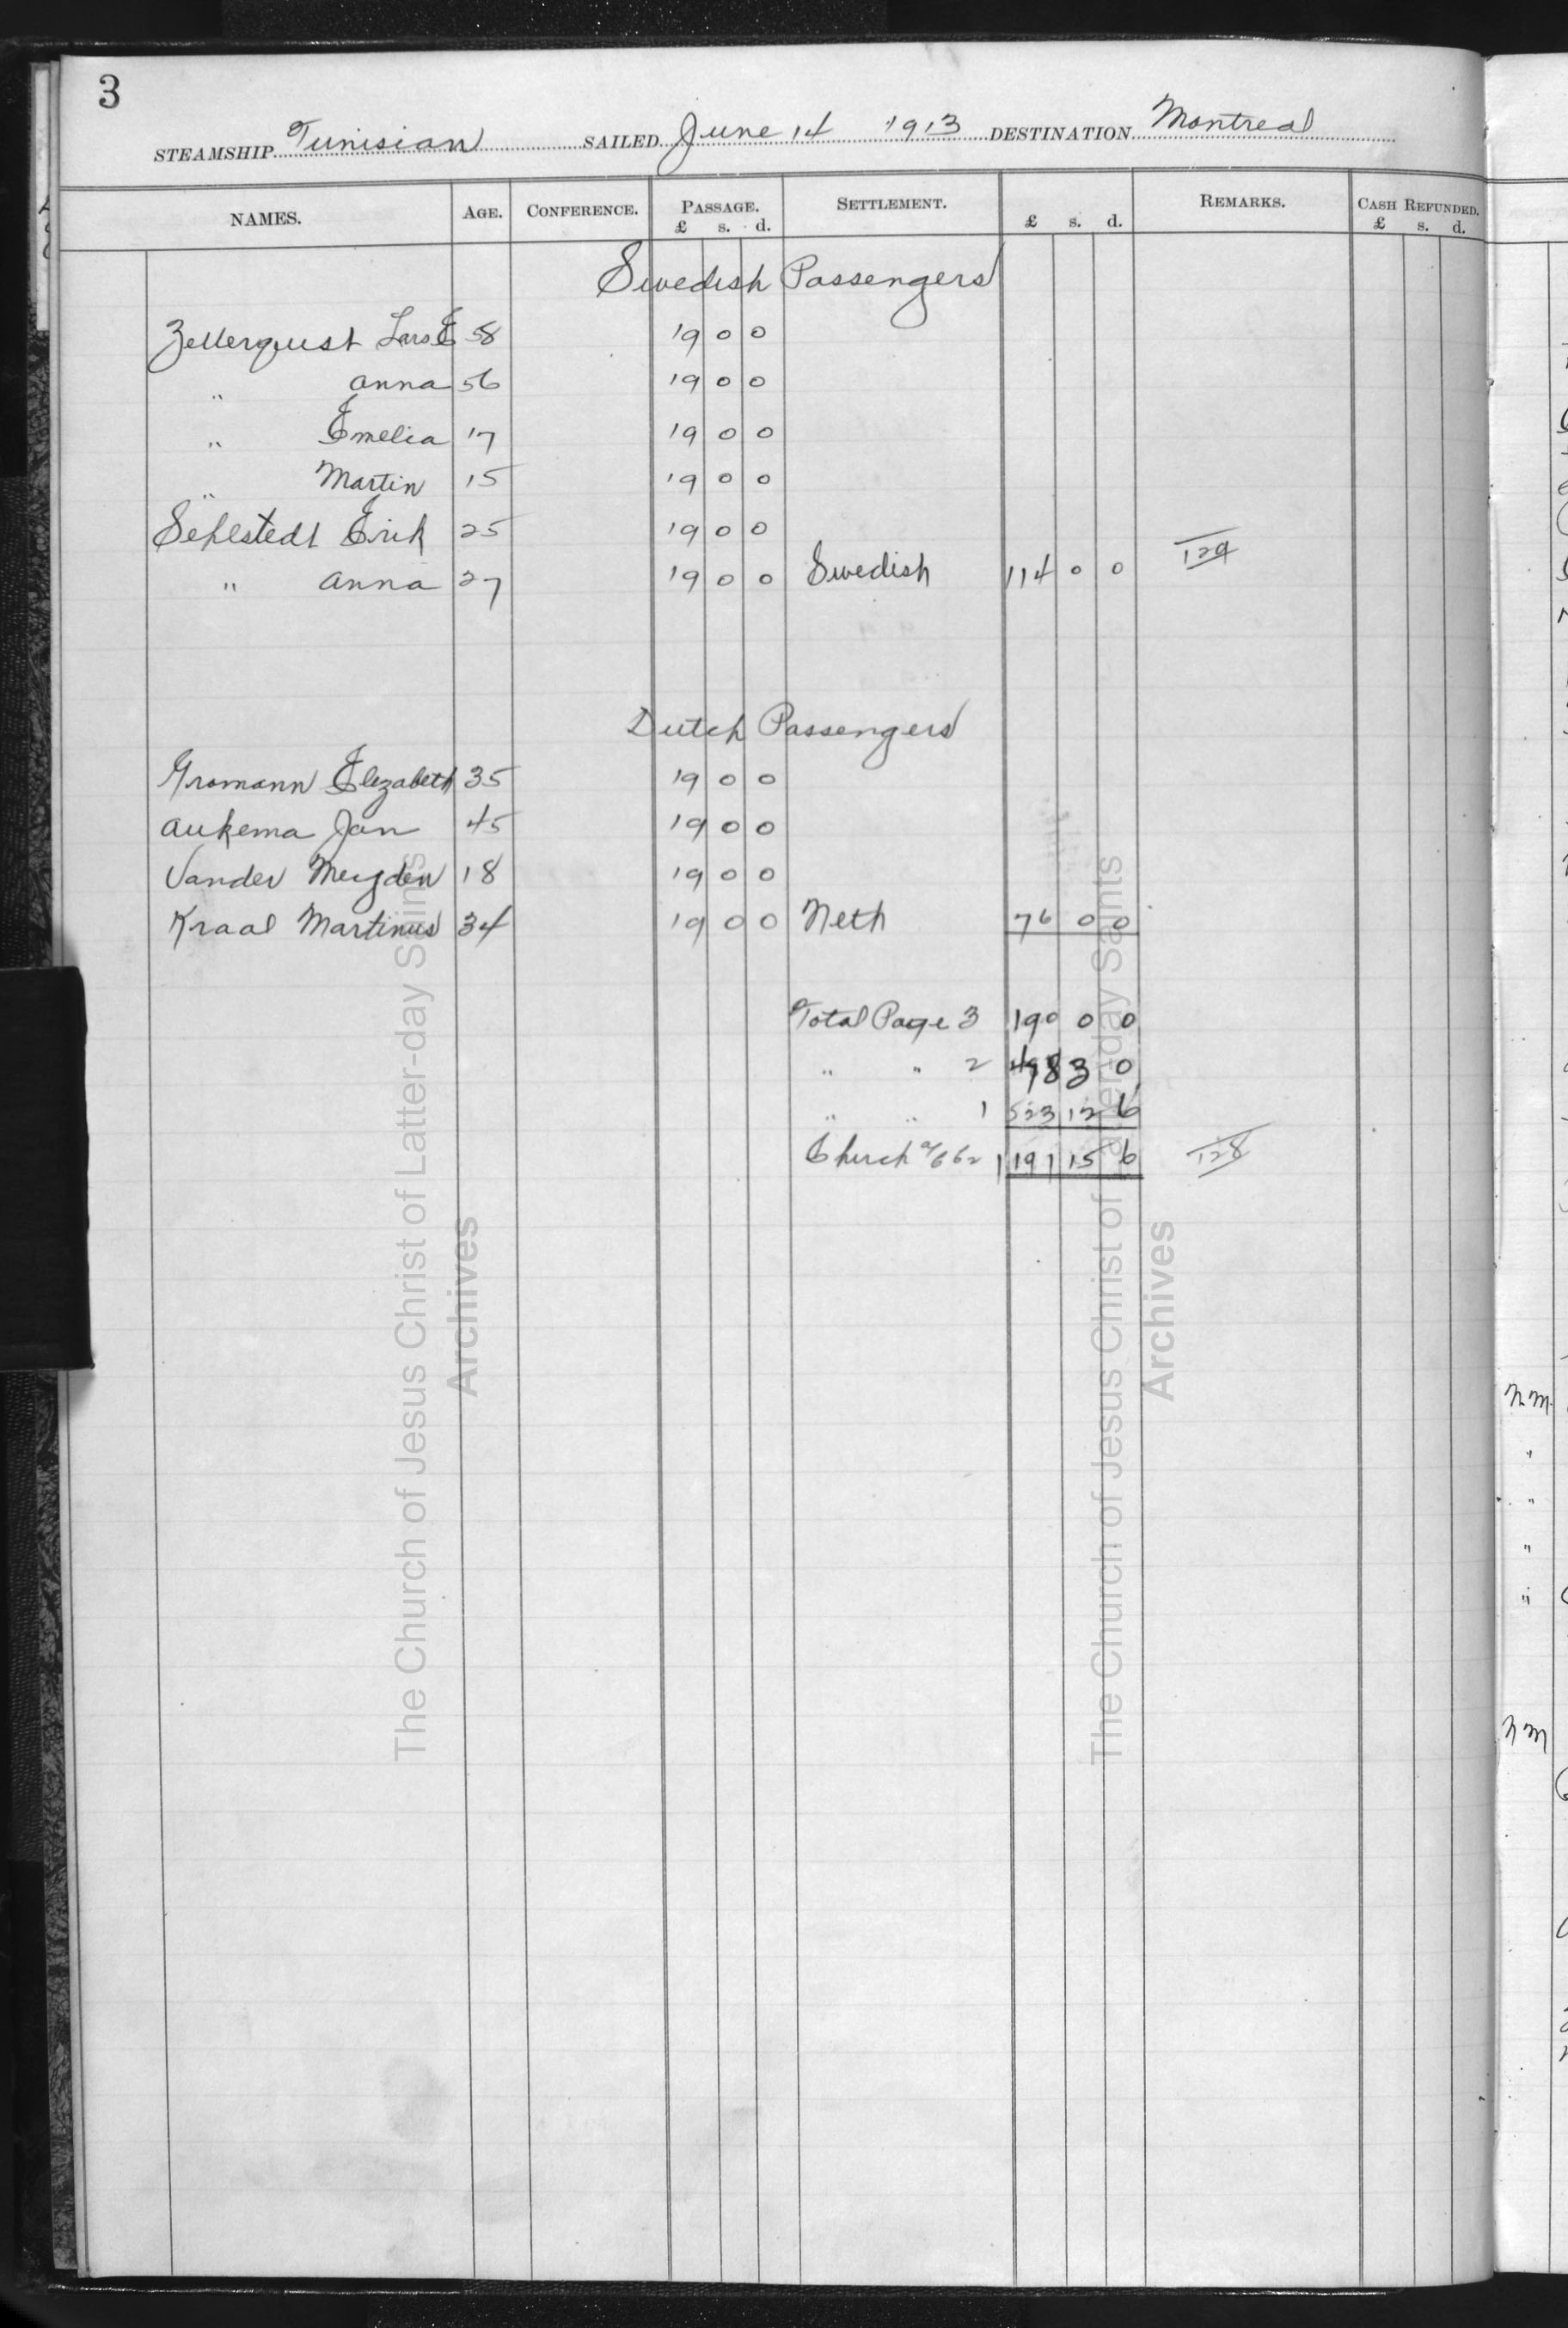 3
STEAMSHIP Tunisian SAILED June 14 1913 DESTINATION Montreal
NAMES. AGE. CONFERENCE. PASSAGE. £ s. d. SETTLEMENT. £ s. d. REMARKS. CASH REFUNDED. £ s. d.
Swedish Passengers
Zellerquist Lars E 58 19 0 0
" Anna 56 19 0 0
" Emelia 17 19 0 0
" Martin 15 19 0 0
Sehlstedt Erik 25 19 0 0
" Anna 27 19 0 0 Swedish 114 0 0 129
Dutch Passengers
Gromann Elezabeth 35 19 0 0
Aukema Jan 45 19 0 0
Vander Meyden 18 19 0 0
Kraal Martinus 34 19 0 0 Neth 76 0 0
Total Page 3 190 0 0
" " 2 478 3 0
" " 1 523 12 6
Church 62 1191 15 6 128
The Church of Jesus Christ of Latter-day Saints
Archives
The Church of Jesus Christ of Latter-day Saints
Archives